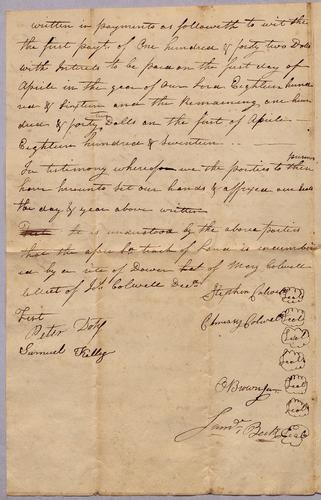 written in payments as followeth to wit the
the first payt. of One hundred & forty two Dolls
with Interest to be paid on the first day of
Aprile in the year of our Lord Eighteen hund
red & Sixteen and the Remaining one hun
dred & forty Dolls on the first of Aprile
Eighteen hundred & Seventeen
In testimony whereof we the parties to these
presents
have hereunto Set our hands & affixed our Seals
the day & year above written
it is understood by the above parties
that the tract of Land is incumber
ed by a of Dower of Mary Colwell
of Job Colwell Decd.
Stephen Colwell Seal
Test
Peter Doty
Colwell Seal
Samuel Kelly
Seal
Brown Seal
Seal
Saml. Beck Seal